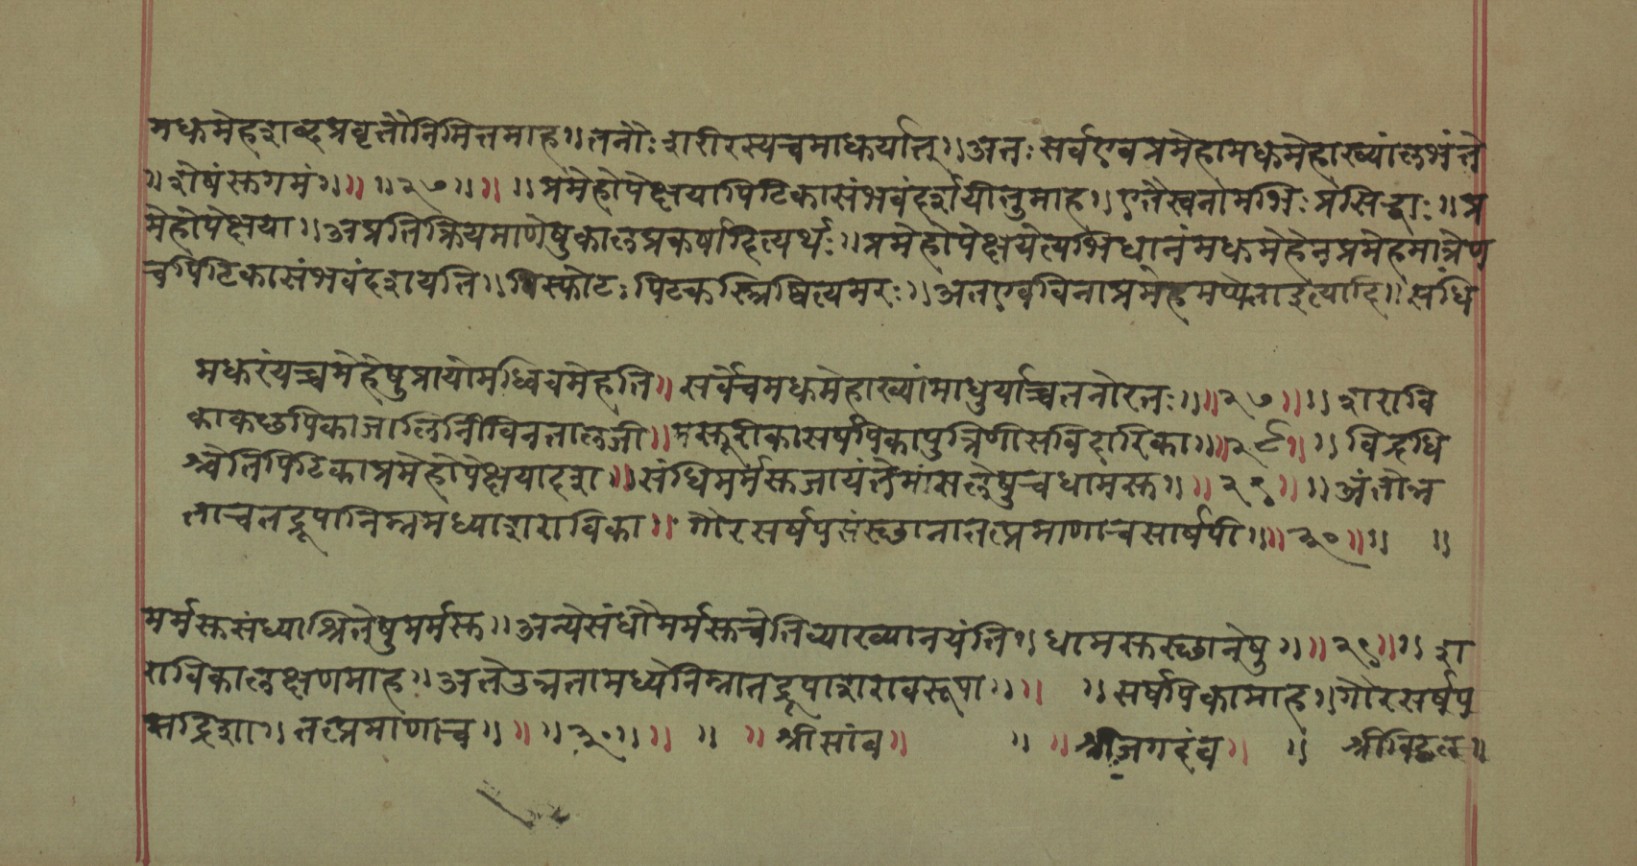 मधुमेहशब्दप्रवृत्तौनिमित्तमाह॥तनोः शरीरस्यचमाधुर्यात्॥अतः सर्वएवप्रमेहामधुमेहाख्यांलभंते
॥शेषंसुगमं॥॥ ॥२७॥॥ ॥प्रमेहोपेक्षयापिटिकासंभवंदर्शयीतुमाह॥एतैस्वनामभिः प्रसिद्धाः॥प्र
मेहोपेक्षया॥अप्रतिक्रियमाणेषुकालप्रकर्षादित्यर्थः॥प्रमेहोपेक्षयेत्यभिधानंमधुमेहेनप्रमेहमात्रेण
चपिटिकासंभवंदशयति॥विस्फोटः पिटकस्त्रिष्वित्यमरः॥अतएवविनाप्रमेहमप्येताइत्यादि॥संधि
मधुरंयच्चमेहेषुप्रायोमध्विवमेहति॥सर्वेचमधुमेहाख्यांमाधुर्याच्चतनोरतः॥॥२७॥॥शरावि
काकछपिकाजालिनीविनतालजी॥मसूरीकासर्षपिकापुत्रिणीसविदारिका॥॥२८॥॥विद्रधि
श्चेतिपिटिकाप्रमेहोपेक्षयादश॥संधिमर्मसुजायंतेमांसलेषुचधामसु॥॥२९॥॥अंतोन्न
ताचतद्रूपानिम्नमध्याशराविका॥गौरसर्षपसंस्छानातत्प्रमाणाचसार्षपी॥॥३०॥॥ ॥
मर्मसुसंध्याश्रितेषुमर्मसु॥अन्येसंधौमर्मसुचेतिव्याख्यानयंति॥धामसुस्छानेषु॥॥२९॥॥श
राविकालक्षणमाह॥अंतेउन्नतामध्येनिम्नातद्रूपाशरावरूपा॥॥ ॥सर्षपिकामाह॥गौरसर्षप
सद्रिशा॥तत्प्रमाणाच॥॥ ॥३०॥॥ ॥ ॥श्रीसांब॥ ॥ ॥श्रीजगदंब॥ ॥ श्रीविठ्ठल॥